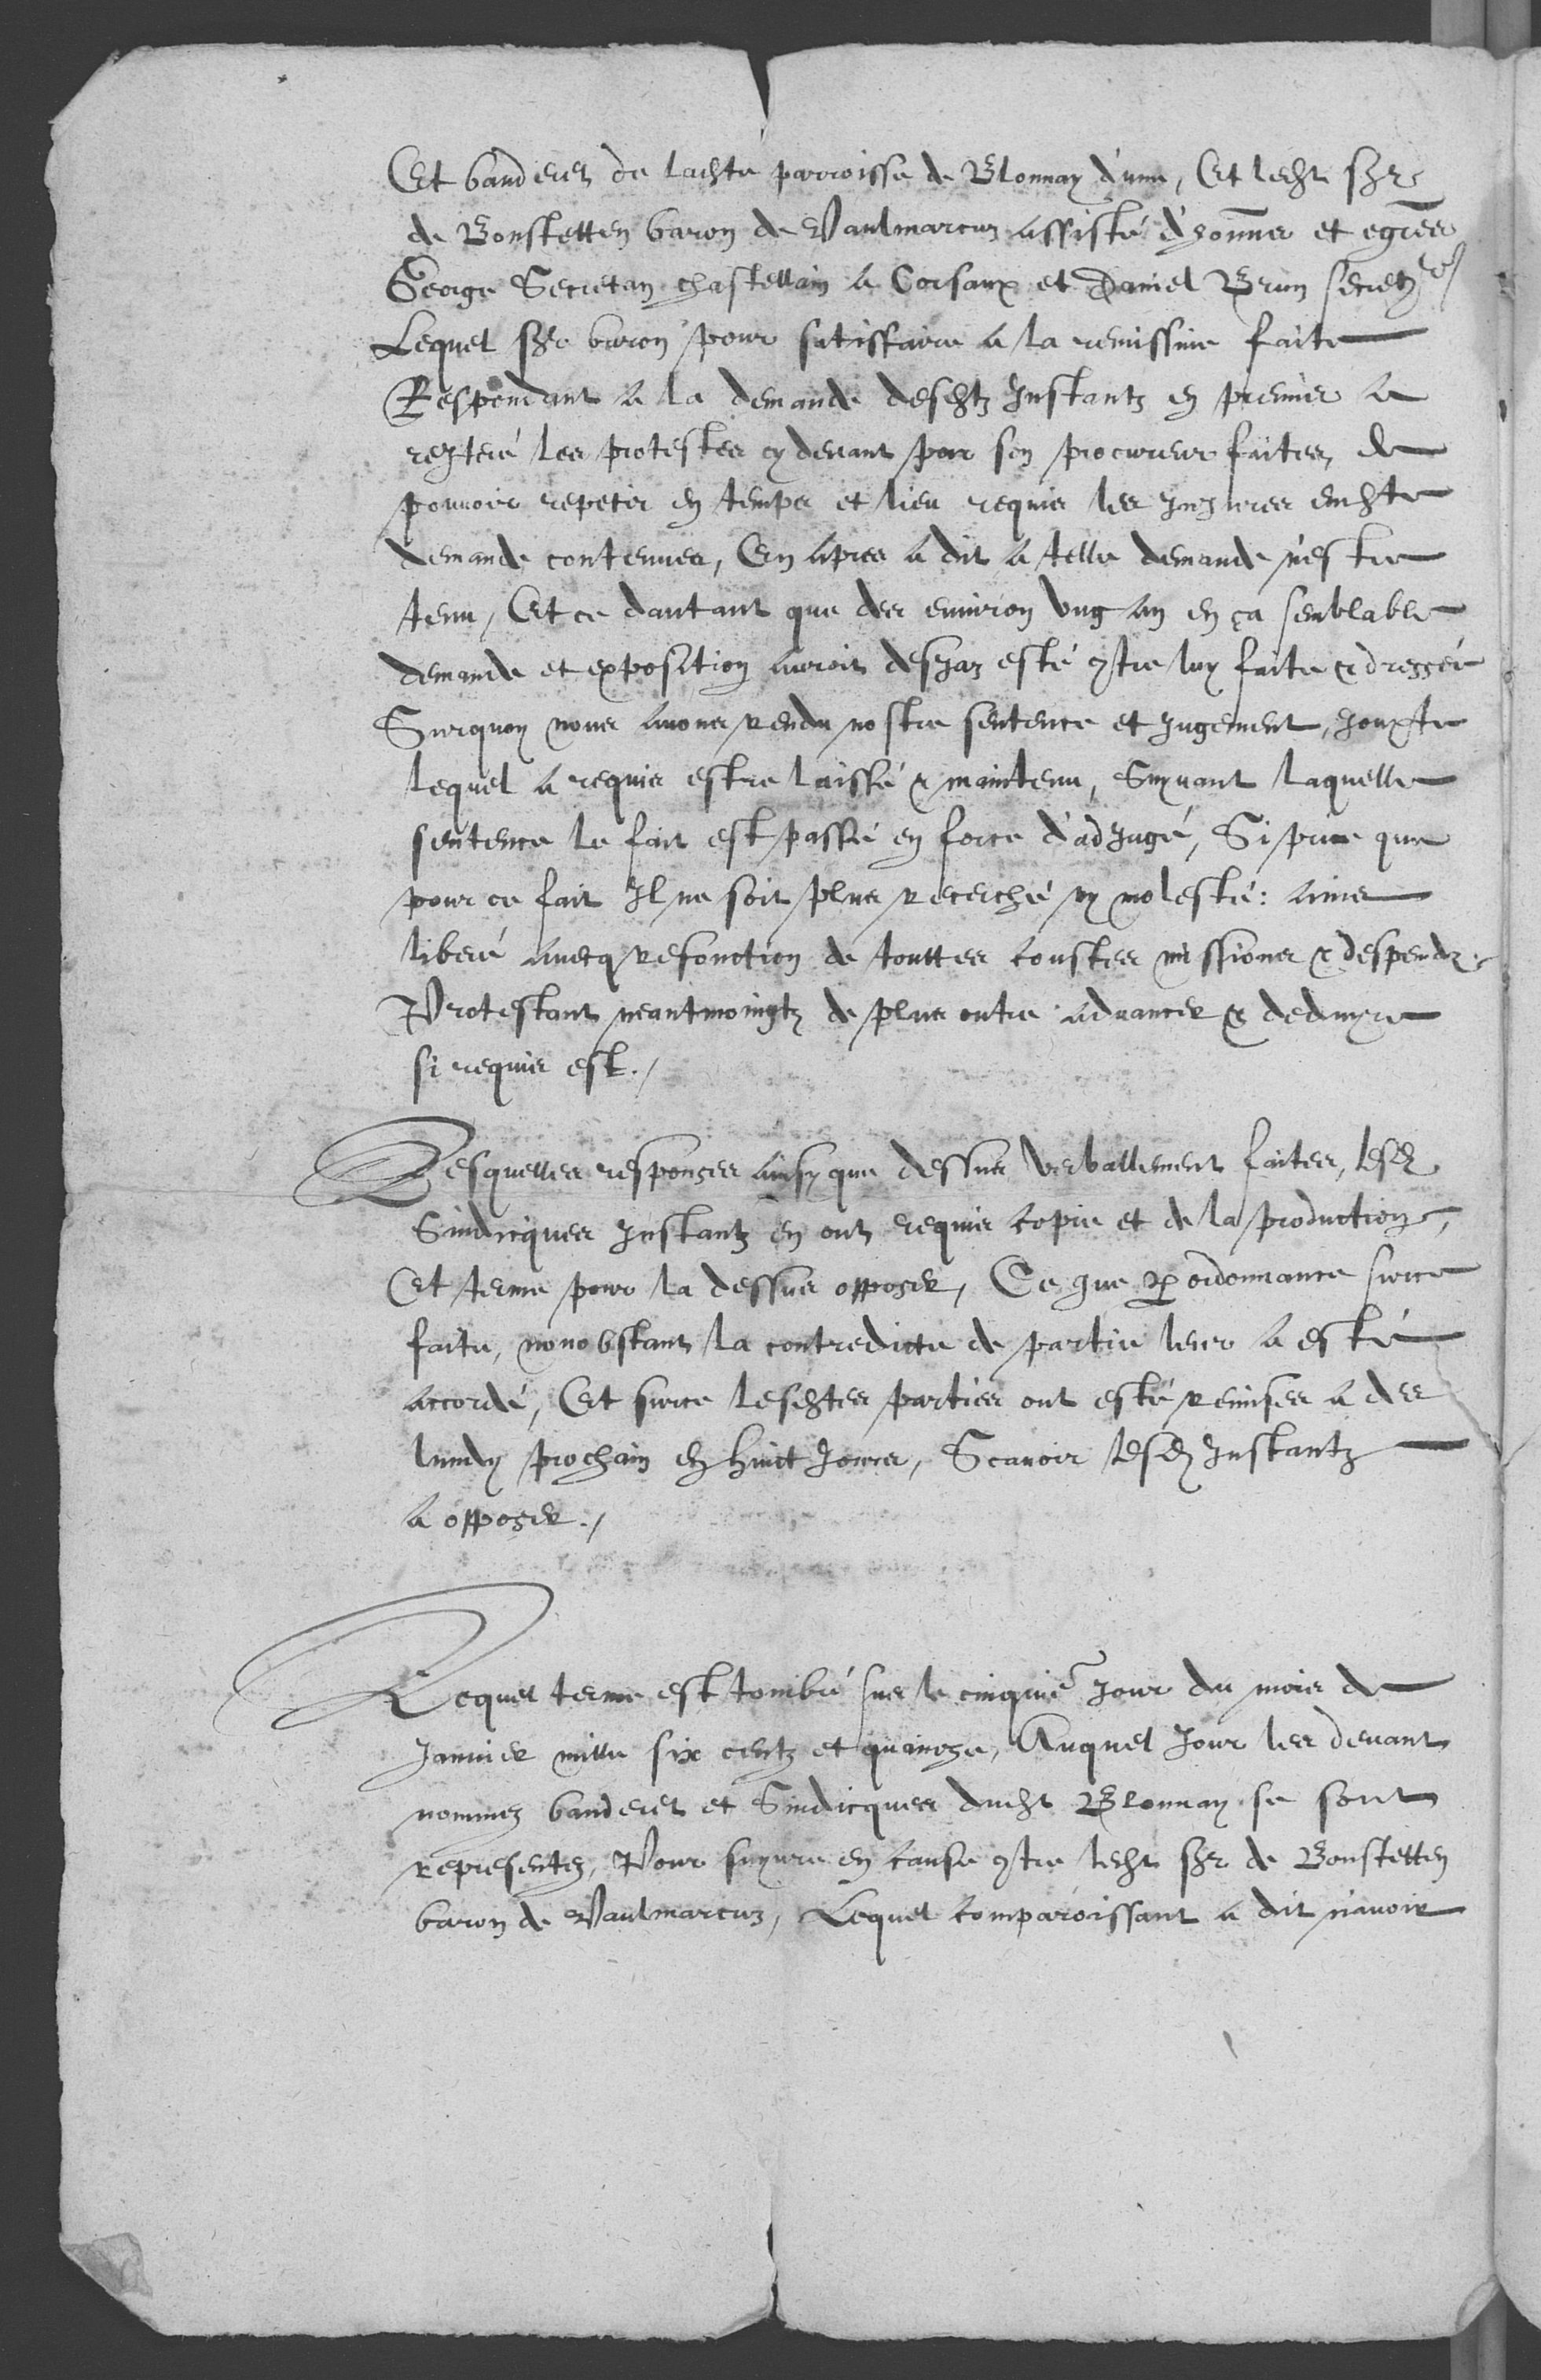 Et banderet de ladhte parroisse de Blonnay d'une, Et ledht sgr
de Bonstetten baron de Vaulmarcuz assisté d'honnes et egrées
George Secretan chastellain a Corsaux et Daniel Brun secret.
Lequel sgr baron pour satisffaire a la remissine faite
Respondant a la demande desdhtz Instantz en premier a
rejteré les protestes cy devant par son procureur faites, de
pouvoir repeter en temps et lieu requis les Injures endhte
demande contenues, En apres a dit a telle demande n'estre
tenu, Et ce dautant que des environ ung an en ça semblable
demande et exposition auroit desjaz esté 9tre luy faite & dressée
Surquoy nous avons rendu nostre sentence et Jugement, Jouxte
lequel a requis estre laissé & maintenu, Suyvant laquelle
sentence le fait est passé en force d'adJugé, Si prie que
pour ce fait Il ne soit plus recerché ny molesté: ains
liberé avecq refonction de touttes coustes missions & despendz.
Protestant neantmoingtz de plus outre advancer & deduyre
si requis est./
Desquelles responses ainsy que dessus verballement faites, lesd.
Sindicques Instantz en ont requis copie et de la production,
Et terme pour la dessus opposer, Ce que p ordonnance surce
faite, nonobstant la contredicte de partie leur a esté
accordé, Et surce lesdhtes parties ont esté remises a des
lundy prochain en huict Jours, Scavoir lesd. Instantz
a opposer./
Lequel terme est tombé sus le cinquie Jour du mois de
Janvier mille six centz et quinze, Auquel Jour les devant
nommez banderet et Sindicques dudht Blonnay se sont
representez, Pour suyvre en cause 9tre ledht sgr de Bonstetten
baron de Vaulmarcuz, Lequel comparoissant a dit n'avoir